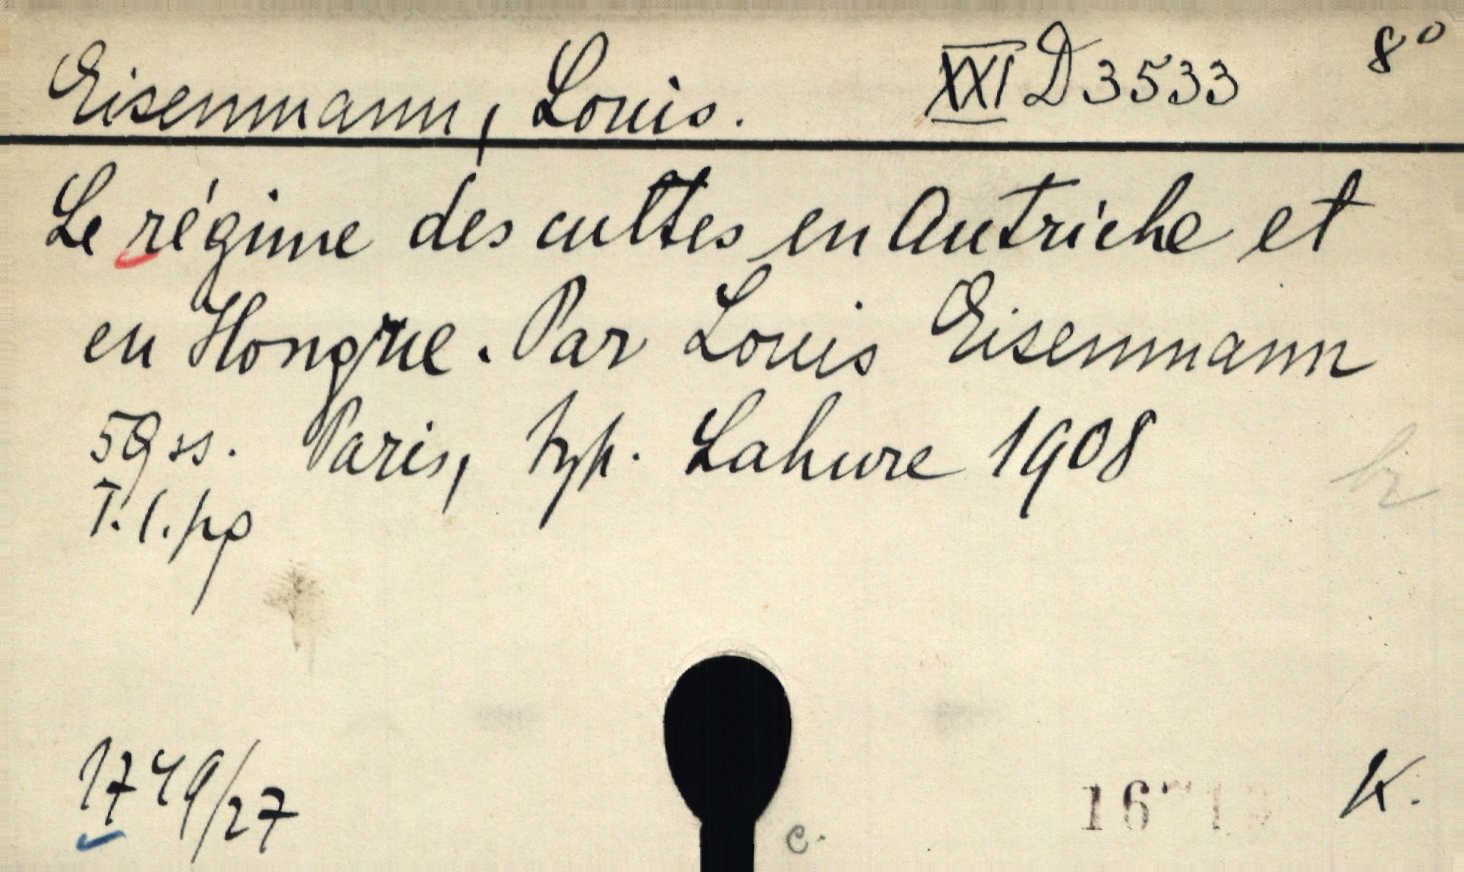 Eisenmann, Louis. XXI D 3533 8°
Le régime des cultes en Autriche et
en Hongrie. Par Louis Eisenmann
59 ss. Paris, typ. Lahure 1908
T. l. pp
1749/27
c.
K.